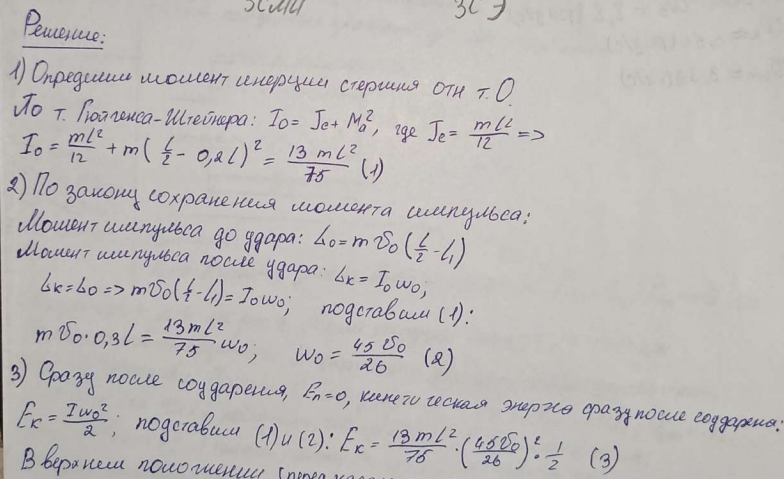 ЗСМИ ЗСЭ
Решение:
1) Определим момент инерции стержня отн т. О.
По т. Гюйгенса-Штейнера: I₀ = Jc + Ma², где Jc = ml²/12 =>
I₀ = ml²/12 + m(l/2 - 0,2l)² = 13 ml²/75 (1)
2) По закону сохранения момента импульса:
Момент импульса до удара: L₀ = mv₀(l/2 - l₁)
Момент импульса после удара: Lк = I₀ω₀;
Lк = L₀ => mv₀(l/2 - l₁) = I₀ω₀; подставим (1):
mv₀·0,3l = 13ml²/75 ω₀; ω₀ = 45v₀/26 (2)
3) Сразу после соударения, Eп=0, кинетическая энергия сразу после соударения:
Eк = Iω₀²/2; подставим (1) и (2): Eк = 13ml²/75 · (45v₀/26)² · 1/2 (3)
В верхнем положении